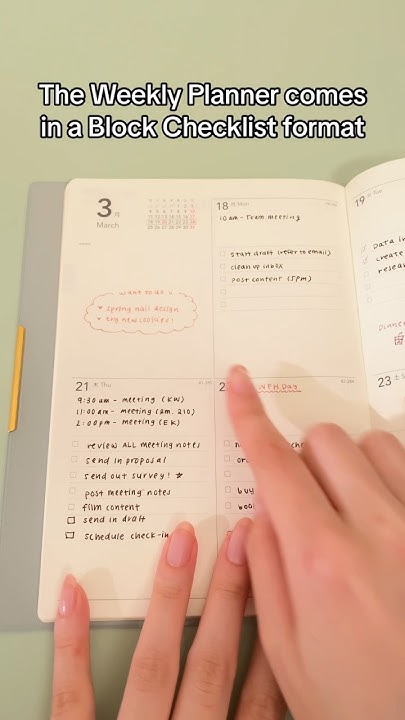 The Weekly Planner comes
in a Block Checklist format
3月
March
18 月 Mon
10 am - Team meeting
start draft (refer to email)
clean up inbox
post content (5pm)
19 火 Tue
Data
create
resea
Dinne
want to do
spring nail design
try new cookies!
21 木 Thu
9:30 am - meeting (KW)
11:00 am - meeting (rm. 210)
2:00 pm - meeting (EK)
review ALL meeting notes
send in proposal
send out survey!
post meeting notes
film content
send in draft
schedule check-in
2
WFH Day
buy
boo
23 土